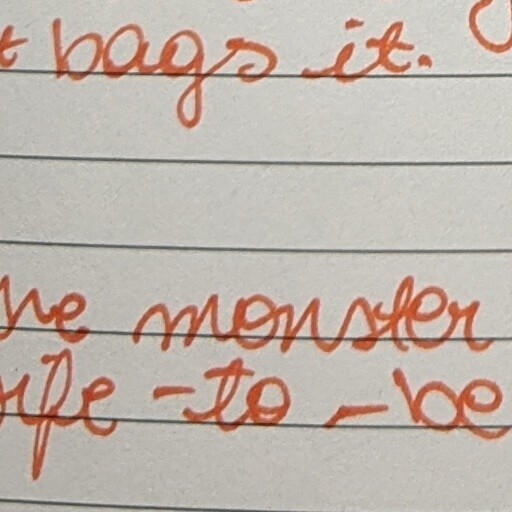 bags it.
he monster
ife-to-be